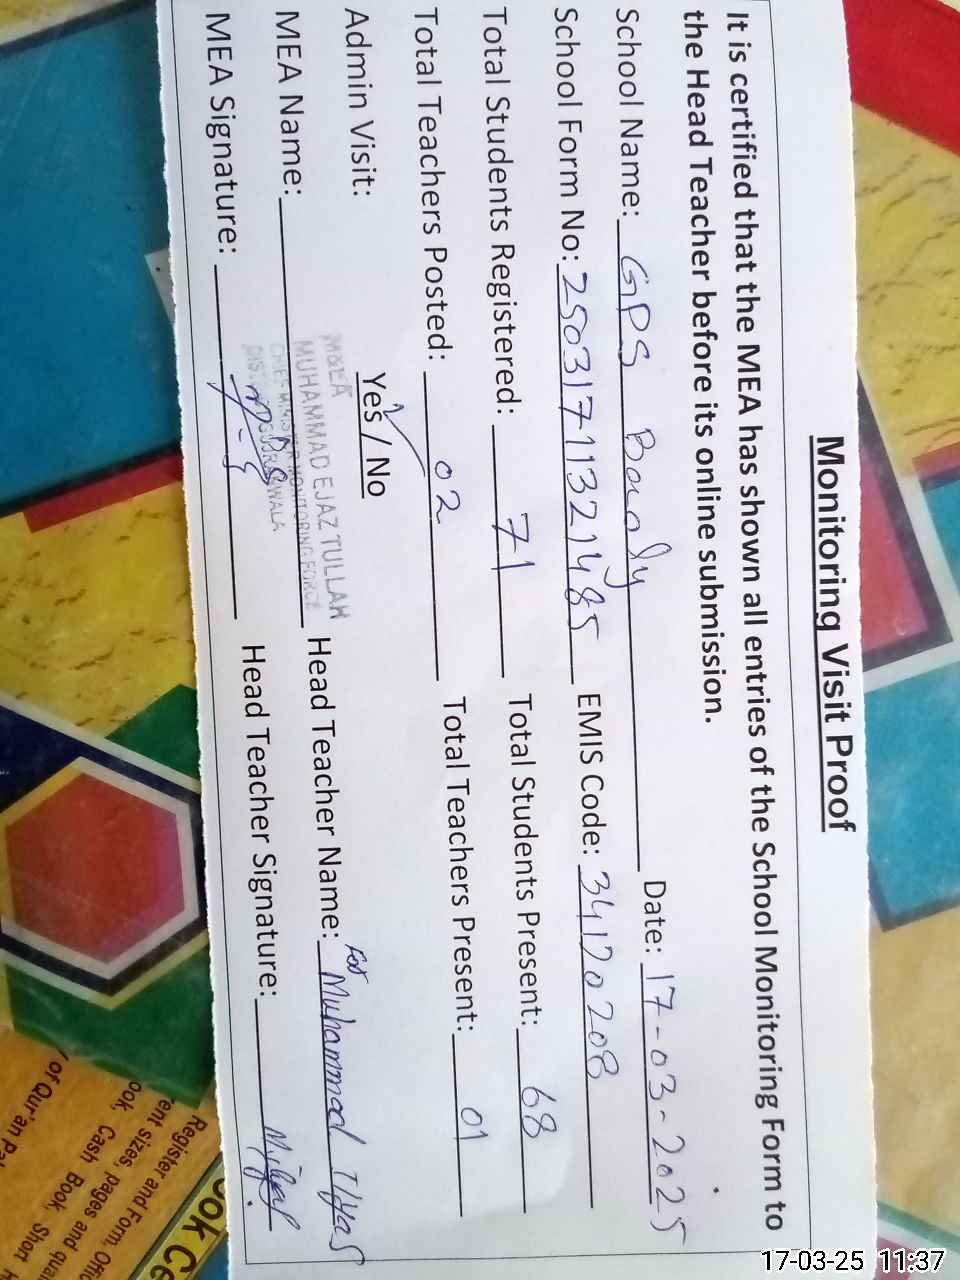 Monitoring Visit Proof
It is certified that the MEA has shown all entries of the School Monitoring Form to
the Head Teacher before its online submission.
School Name: GPS Date: 17-03-2025
School Form No: 25031711321485 EMIS Code: 34120208
Total Students Registered: 71 Total Students Present: 68
Total Teachers Posted: 02 Total Teachers Present: 01
Admin Visit: Yes / No
M&EA
MUHAMMAD EJAZ TULLAH
MEA Name: Head Teacher Name: For Muhammad Ilyas
CHIEF MINISTER MONITORING FORCE
MEA Signature: Head Teacher Signature:
ook Ce
Register and Form, Offic
ent sizes, pages and qua
ook, Cash Book, Short
of Qur'an Pa
17-03-25 11:37